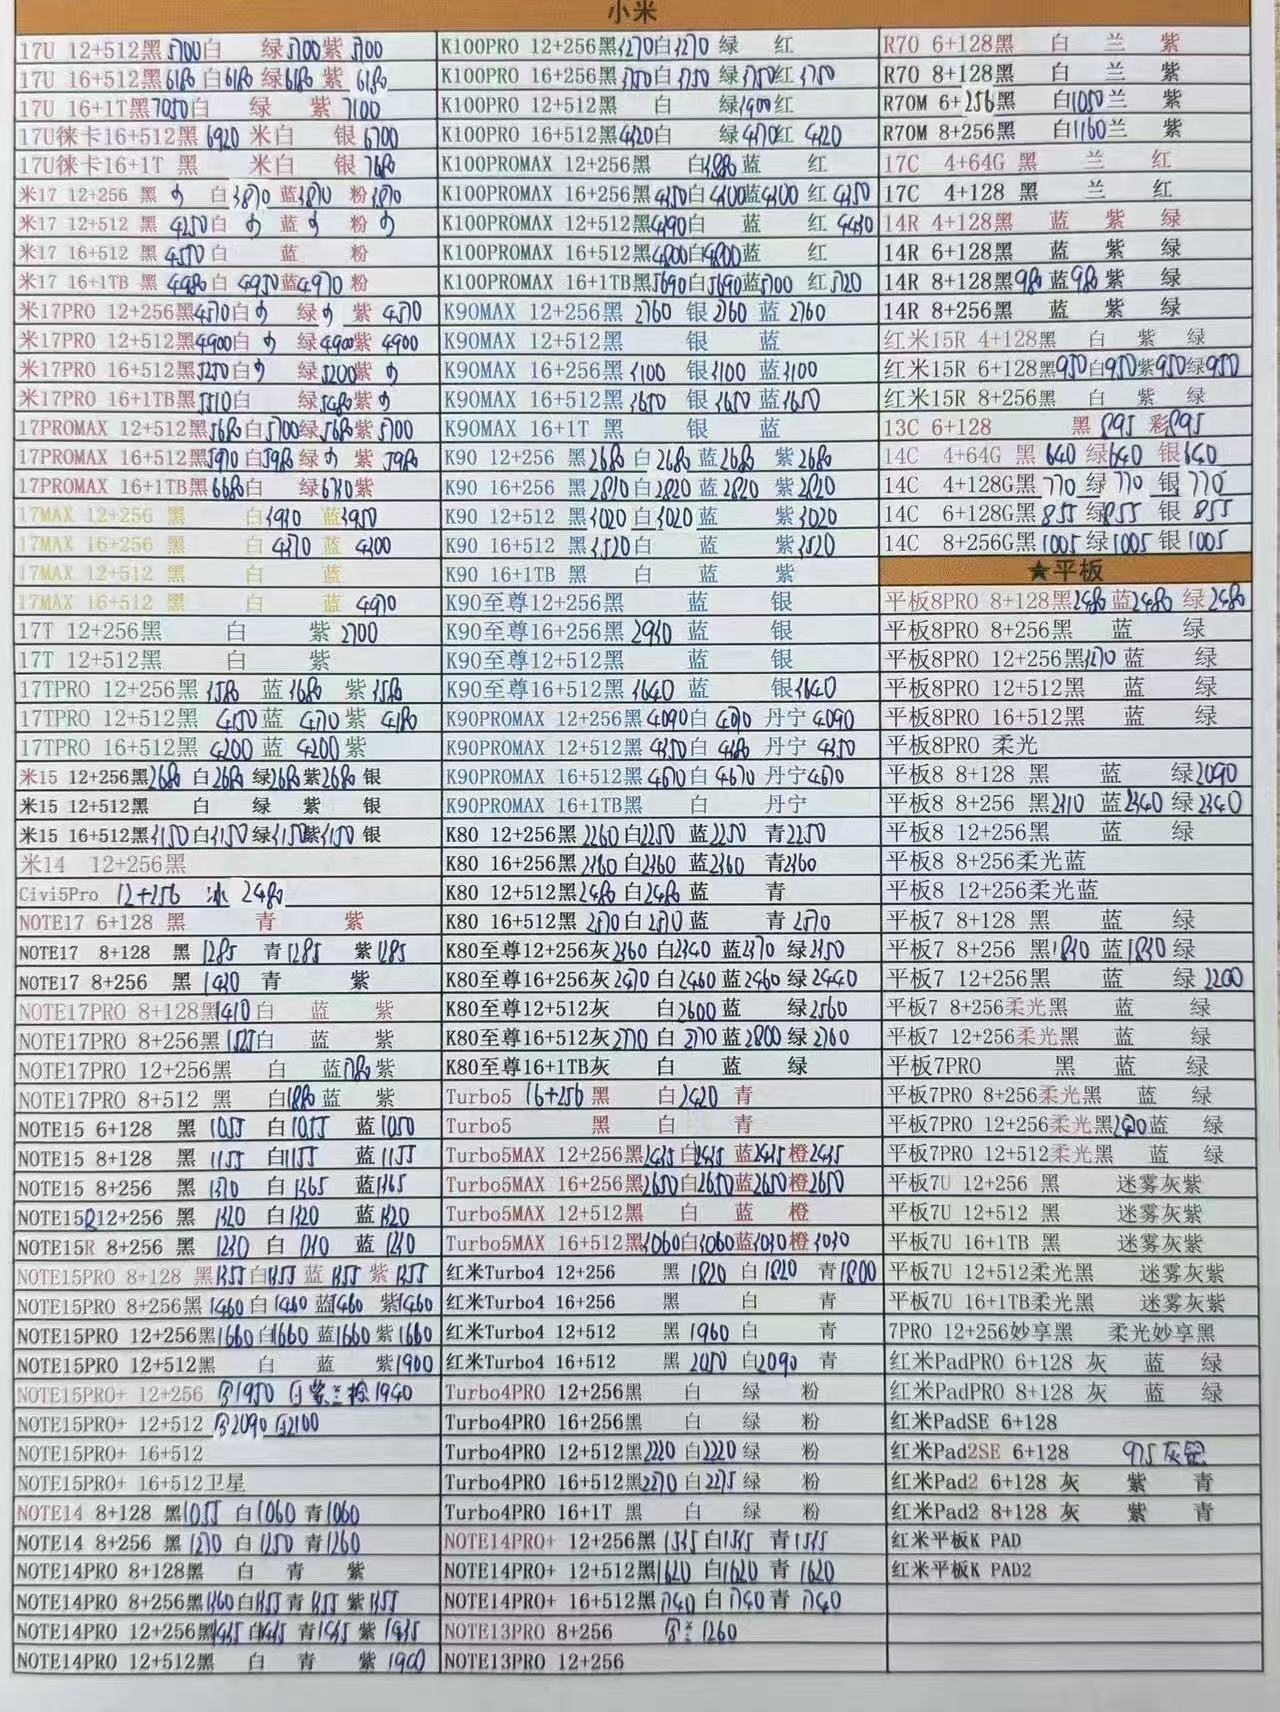 小米
17U 12+512黑5700白 绿5700紫5700
17U 16+512黑6180白6180绿6180紫6180
17U 16+1T黑7050白 绿 紫7100
17U徕卡16+512黑6920 米白 银6700
17U徕卡16+1T 黑 米白 银7680
米17 12+256 黑 白3870蓝3870 粉3870
米17 12+512 黑4250白 蓝 粉
米17 16+512 黑4570白 蓝 粉
米17 16+1TB 黑4980白4950蓝4970粉
米17PRO 12+256黑4570白 绿 紫4570
米17PRO 12+512黑4900白 绿4900紫4900
米17PRO 16+512黑5250白 绿5200紫
米17PRO 16+1TB黑5510白 绿5480紫
17PROMAX 12+512黑5680白5700绿5680紫5700
17PROMAX 16+512黑5970白5980绿 紫5980
17PROMAX 16+1TB黑6680白 绿6730紫
17MAX 12+256 黑 白3930 蓝3950
17MAX 16+256 黑 白4370 蓝4300
17MAX 12+512 黑 白 蓝
17MAX 16+512 黑 白 蓝4970
17T 12+256黑 白 紫2700
17T 12+512黑 白 紫
17TPRO 12+256黑3580 蓝3680 紫3580
17TPRO 12+512黑4150蓝4170紫4180
17TPRO 16+512黑4200蓝4200紫
米15 12+256黑2680白2680绿2680紫2680银
米15 12+512黑 白 绿 紫 银
米15 16+512黑3150白3150绿3150紫3150银
米14 12+256黑
Civi5Pro 12+256 冰 2480
NOTE17 6+128 黑 青 紫
NOTE17 8+128 黑1285 青1285 紫1285
NOTE17 8+256 黑1430青 紫
NOTE17PRO 8+128黑1410白 蓝 紫
NOTE17PRO 8+256黑1575白 蓝 紫
NOTE17PRO 12+256黑 白 蓝1780紫
NOTE17PRO 8+512 黑 白1880蓝 紫
NOTE15 6+128 黑1055 白1055 蓝1050
NOTE15 8+128 黑1155 白1155 蓝1155
NOTE15 8+256 黑1370 白1365 蓝1365
NOTE15R12+256 黑1320 白1320 蓝1320
NOTE15R 8+256 黑1230 白1230 蓝1230
NOTE15PRO 8+128 黑1355白1355蓝1355紫1355
NOTE15PRO 8+256黑1460白1460蓝1460紫1460
NOTE15PRO 12+256黑1660白1660蓝1660紫1660
NOTE15PRO 12+512黑 白 蓝 紫1900
NOTE15PRO+ 12+256 1950 白紫 1940
NOTE15PRO+ 12+512 2090白2100
NOTE15PRO+ 16+512
NOTE15PRO+ 16+512卫星
NOTE14 8+128 黑1055 白1060青1060
NOTE14 8+256 黑1270白1250青1260
NOTE14PRO 8+128黑 白 青 紫
NOTE14PRO 8+256黑1360白1355青1355紫1355
NOTE14PRO 12+256黑1435白1435青1435紫1435
NOTE14PRO 12+512黑 白 青 紫1900
K100PRO 12+256黑3270白3270绿 红
K100PRO 16+256黑3750白3750绿3750红3750
K100PRO 12+512黑 白 绿3900红
K100PRO 16+512黑4420白 绿4470红4420
K100PROMAX 12+256黑 白3880蓝 红
K100PROMAX 16+256黑4350白4300蓝4300红4350
K100PROMAX 12+512黑4390白 蓝 红4430
K100PROMAX 16+512黑4800白4800蓝 红
K100PROMAX 16+1TB黑5690白5690蓝5700红5720
K90MAX 12+256黑2760 银2760 蓝2760
K90MAX 12+512黑 银 蓝
K90MAX 16+256黑3100 银3100 蓝3100
K90MAX 16+512黑3650 银3650 蓝3650
K90MAX 16+1T 黑 银 蓝
K90 12+256 黑2680白2680蓝2680 紫2680
K90 16+256 黑2820白2820蓝2820 紫2820
K90 12+512 黑3020白3020蓝 紫3020
K90 16+512 黑3520白 蓝 紫3520
K90 16+1TB 黑 白 蓝 紫
K90至尊12+256黑 蓝 银
K90至尊16+256黑2930蓝 银
K90至尊12+512黑 蓝 银
K90至尊16+512黑3640蓝 银3640
K90PROMAX 12+256黑4090白4070丹宁4090
K90PROMAX 12+512黑4350白4380丹宁4350
K90PROMAX 16+512黑4670白4670丹宁4670
K90PROMAX 16+1TB黑 白 丹宁
K80 12+256黑2260白2250蓝2250 青2250
K80 16+256黑2360白2360蓝2360 青2360
K80 12+512黑2480白2480蓝 青
K80 16+512黑2570白2570蓝 青2570
K80至尊12+256灰2360白2340蓝2370绿2350
K80至尊16+256灰2470白2460蓝2460绿2440
K80至尊12+512灰 白2600蓝 绿2560
K80至尊16+512灰2770白2770蓝2800绿2760
K80至尊16+1TB灰 白 蓝 绿
Turbo5 16+256黑 白2420青
Turbo5 黑 白 青
Turbo5MAX 12+256黑2435白2435蓝2435橙2435
Turbo5MAX 16+256黑2650白2650蓝2650橙2650
Turbo5MAX 12+512黑 白 蓝 橙
Turbo5MAX 16+512黑3060白3060蓝3030橙3030
红米Turbo4 12+256 黑1820白1820青1800
红米Turbo4 16+256 黑 白 青
红米Turbo4 12+512 黑1960白 青
红米Turbo4 16+512 黑2050白2090青
Turbo4PRO 12+256黑 白 绿 粉
Turbo4PRO 16+256黑 白 绿 粉
Turbo4PRO 12+512黑2220白2220绿 粉
Turbo4PRO 16+512黑2270白2275绿 粉
Turbo4PRO 16+1T 黑 白 绿 粉
NOTE14PRO+ 12+256黑1535白1535青1535
NOTE14PRO+ 12+512黑1620白1620青1620
NOTE14PRO+ 16+512黑1740白1740青1740
NOTE13PRO 8+256 1260
NOTE13PRO 12+256
R70 6+128黑 白 兰 紫
R70 8+128黑 白 兰 紫
R70M 6+256黑 白1050兰 紫
R70M 8+256黑 白1160兰 紫
17C 4+64G 黑 兰 红
17C 4+128 黑 兰 红
14R 4+128黑 蓝 紫 绿
14R 6+128黑 蓝 紫 绿
14R 8+128黑980蓝980紫 绿
14R 8+256黑 蓝 紫 绿
红米15R 4+128黑 白 紫 绿
红米15R 6+128黑950白950紫950绿950
红米15R 8+256黑 白 紫 绿
13C 6+128 黑895 彩895
14C 4+64G 黑640 绿640 银640
14C 4+128G黑770 绿770 银770
14C 6+128G黑855绿855 银855
14C 8+256G黑1005绿1005银1005
★平板
平板8PRO 8+128黑2480蓝2480绿2480
平板8PRO 8+256黑 蓝 绿
平板8PRO 12+256黑3270蓝 绿
平板8PRO 12+512黑 蓝 绿
平板8PRO 16+512黑 蓝 绿
平板8PRO 柔光
平板8 8+128 黑 蓝 绿2090
平板8 8+256 黑2310 蓝2340绿2340
平板8 12+256黑 蓝 绿
平板8 8+256柔光蓝
平板8 12+256柔光蓝
平板7 8+128黑 蓝 绿
平板7 8+256 黑1830蓝1830绿
平板7 12+256黑 蓝 绿2200
平板7 8+256柔光黑 蓝 绿
平板7 12+256柔光黑 蓝 绿
平板7PRO 黑 蓝 绿
平板7PRO 8+256柔光黑 蓝 绿
平板7PRO 12+256柔光黑 蓝 绿
平板7PRO 12+512柔光黑 蓝 绿
平板7U 12+256 黑 迷雾灰紫
平板7U 12+512 黑 迷雾灰紫
平板7U 16+1TB 黑 迷雾灰紫
平板7U 12+512柔光黑 迷雾灰紫
平板7U 16+1TB柔光黑 迷雾灰紫
7PRO 12+256妙享黑 柔光妙享黑
红米PadPRO 6+128 灰 蓝 绿
红米PadPRO 8+128 灰 蓝 绿
红米PadSE 6+128
红米Pad2SE 6+128 975灰
红米Pad2 6+128 灰 紫 青
红米Pad2 8+128 灰 紫 青
红米平板K PAD
红米平板K PAD2